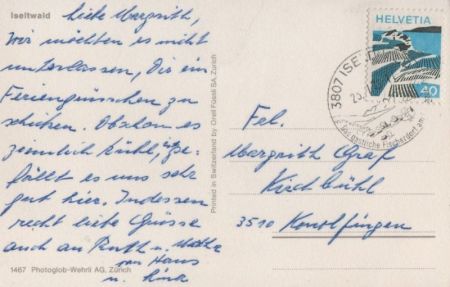 Iseltwald
Liebe Margrith,
Wir möchten es nicht
unterlassen, Dir ein
Feriengrüsschen zu
schicken. Obschon es
ziemlich kühl, ge-
fällt es uns sehr
gut hier. Indessen
recht liebe Grüsse
auch an Ruth u.
von Hans
u.
1467 Photoglob-Wehrli AG, Zürich
Printed in Switzerland by Orell Füssli SA, Zürich
HELVETIA
40
3807 ISEL
Frl.
Margrith Graf
Kirchbühl
3510 Konolfingen